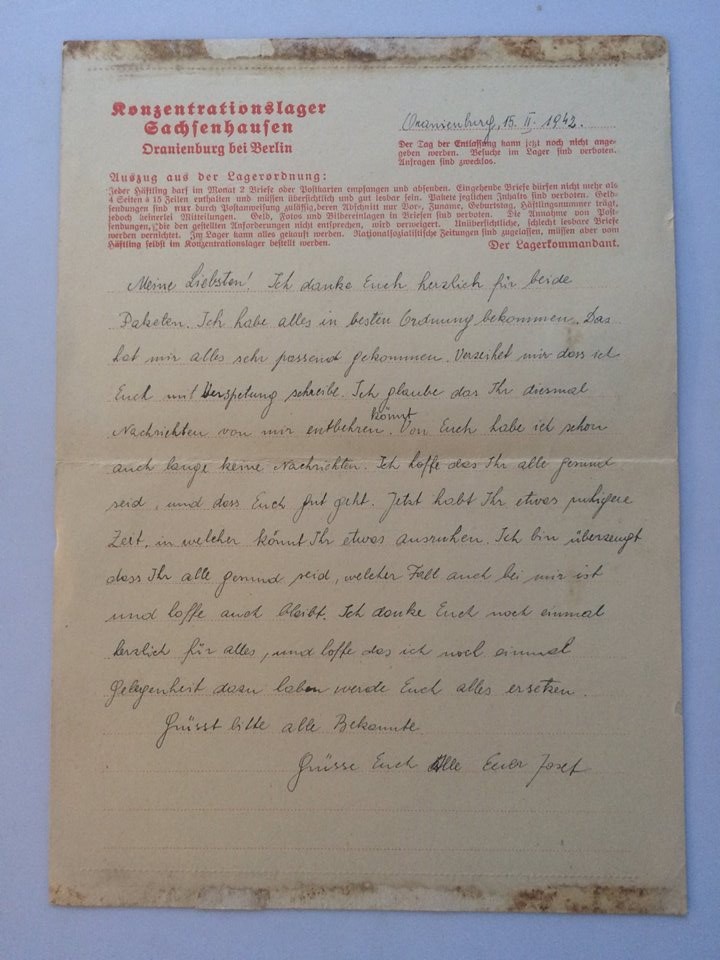 Konzentrationslager
Sachsenhausen
Oranienburg bei Berlin
Oranienburg, 15. II. 1942.
Der Tag der Entlassung kann jetzt noch nicht ange-
geben werden. Besuche im Lager sind verboten.
Anfragen sind zwecklos.
Auszug aus der Lagerordnung:
Jeder Häftling darf im Monat 2 Briefe oder Postkarten empfangen und absenden. Eingehende Briefe dürfen nicht mehr als
4 Seiten à 15 Zeilen enthalten und müssen übersichtlich und gut lesbar sein. Pakete jeglichen Inhalts sind verboten. Geld-
sendungen sind nur durch Postanweisung zulässig, deren Abschnitt nur Vor-, Zuname, Geburtstag, Häftlingsnummer trägt,
jedoch keinerlei Mitteilungen. Geld, Fotos und Bildereinlagen in Briefen sind verboten. Die Annahme von Post-
sendungen, die den gestellten Anforderungen nicht entsprechen, wird verweigert. Unübersichtliche, schlecht lesbare Briefe
werden vernichtet. Im Lager kann alles gekauft werden. Nationalsozialistische Zeitungen sind zugelassen, müssen aber vom
Häftling selbst im Konzentrationslager bestellt werden.
Der Lagerkommandant.
Meine Liebsten! Ich danke Euch herzlich für beide
Paketen. Ich habe alles in besten Ordnung bekommen. Das
hat mir alles sehr passend gekommen. Verzeihet mir dass ich
Euch mit Verspetung schreibe. Ich glaube das Ihr diesmal
Nachrichten von mir entbehren könnt. Von Euch habe ich schon
auch lange keine Nachrichten. Ich hoffe das Ihr alle gesund
seid, und dass Euch gut geht. Jetzt habt Ihr etwas ruhigere
Zeit, in welcher könnt Ihr etwas ausruhen. Ich bin überzeugt
dass Ihr alle gesund seid, welcher Fall auch bei mir ist
und hoffe auch bleibt. Ich danke Euch noch einmal
herzlich für alles, und hoffe das ich noch einmal
Gelegenheit dazu haben werde Euch alles ersetzen.
Grüsst bitte alle Bekannte.
Grüsse Euch Alle Euer Josef